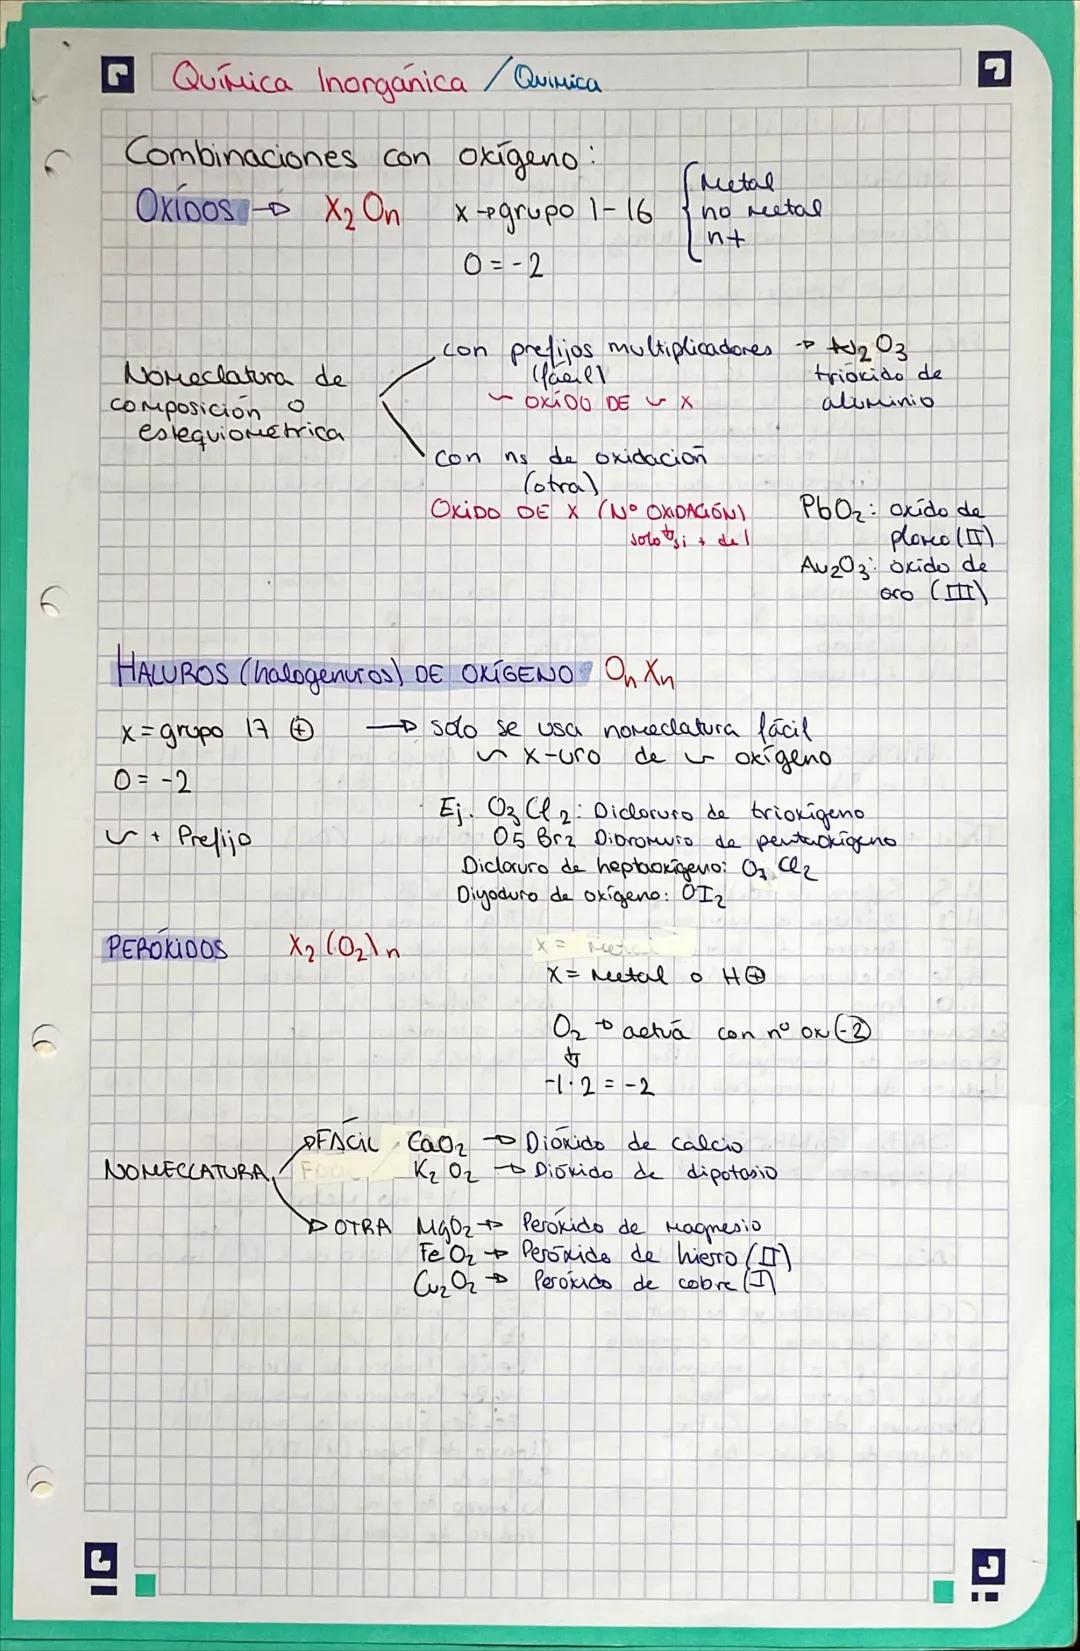 Química Inorgánica / Química
Combinaciones con oxígeno:
OXÍDOS → X₂On x→grupo 1-16 { Metal
no metal
n+
O = -2
Nomeclatura de
composición o
estequiométrica
con prefijos multiplicadores → Al₂O₃
(fácil)
trióxido de
aluminio
~ OXÍDO DE ~ X
con ns de oxidación
(otra)
OXIDO DE X (Nº OXIDACIÓN)
solo si + de 1
PbO₂: oxído de
plomo (II)
Au₂O₃: óxido de
oro (III)
HALUROS (halogenuros) DE OXÍGENO OnXn
x = grupo 17 ⊕ → solo se usa nomeclatura fácil
~ X-uro de ~ oxígeno
O = -2
~ + Prefijo
Ej. O₃Cl₂: Dicloruro de trioxígeno
O5 Br2 Dibromuro de pentaoxígeno
Dicloruro de heptaoxígeno: O₇Cl₂
Diyoduro de oxígeno: OI₂
PERÓXIDOS X₂(O₂)n
X = Metal o H⊕
O₂ → actuá con nº ox (-2)
↓
-1·2 = -2
NOMECLATURA
→ FÁCIL CaO₂ → Dióxido de calcio
K₂O₂ → Dióxido de dipotasio
→ OTRA MgO₂ → Peróxido de magnesio
FeO₂ → Peróxido de hierro (II)
Cu₂O₂ → Peróxido de cobre (I)